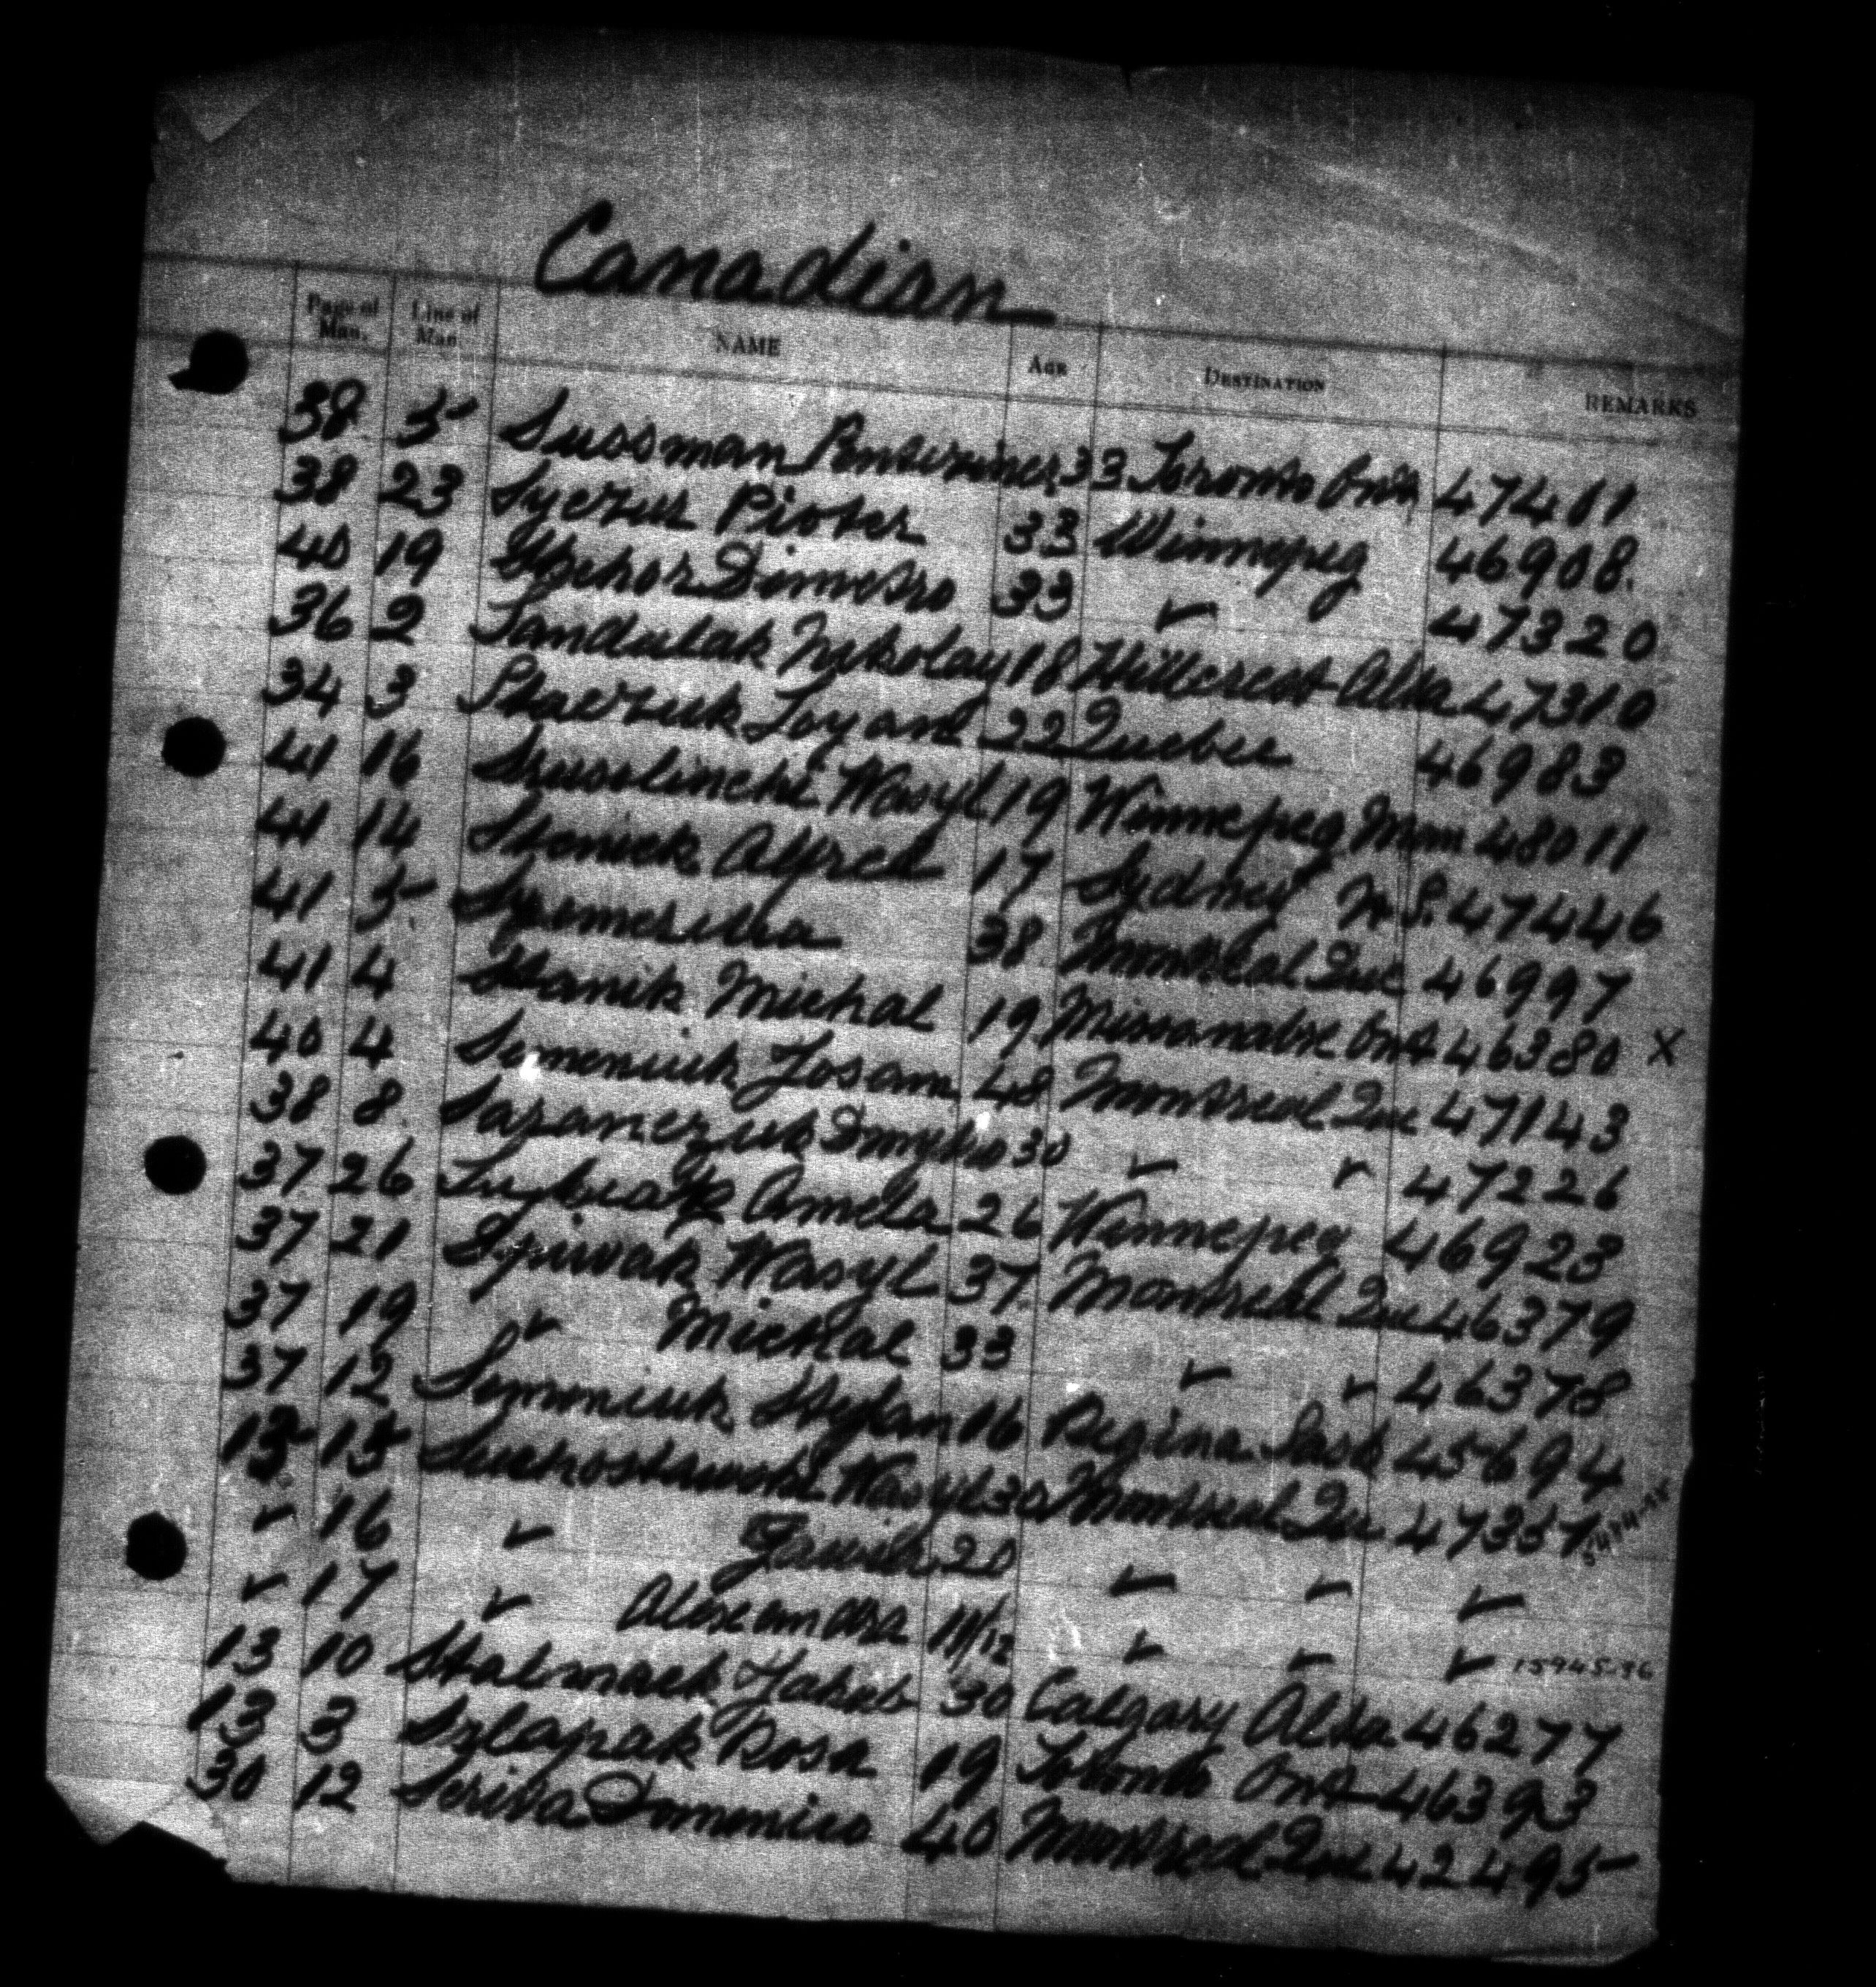 Canadian
Page of Man. Line of Man. NAME AGE DESTINATION REMARKS
38 5 Sussman 33 Toronto Ont 47461
38 23 Syczuk Pioter 33 Winnepeg 46908.
40 19 Dimetro 33 ✓ 47320
36 2 Sandulak Nikolay 18 Hillcrest Alta 47310
34 3 22 Quebec 46983
41 16 Wasyl 19 Winnepeg Man 48011
41 14 Alfred 17 Sydney N.S. 47446
41 5 38 Montreal Que 46997
41 4 Stanik Michal 19 Missanabie Ont 46380 X
40 4 Semeniuk Josam 48 Montreal Que 47143
38 8 Dmytro 30 ✓ ✓ 47226
37 26 Amela 26 Winnepeg 46923
37 21 Spiwak Wasyl 37 Montreal Que 46379
37 19 ✓ Michal 33 ✓ ✓ 46378
37 12 Semeniuk Stefan 16 Regina Sask 45694
15 15 Wasyl 30 Montreal Que 47357
✓ 16 ✓ 20 ✓ ✓ ✓
✓ 17 ✓ Alexandra 11/12 ✓ ✓ ✓ 15945-96
13 10 Stalmach Jakub 30 Calgary Alta 46277
13 3 Szlapak Rosa 19 Toronto Ont 46393
30 12 Scriva Domenico 40 Montreal Que 42495